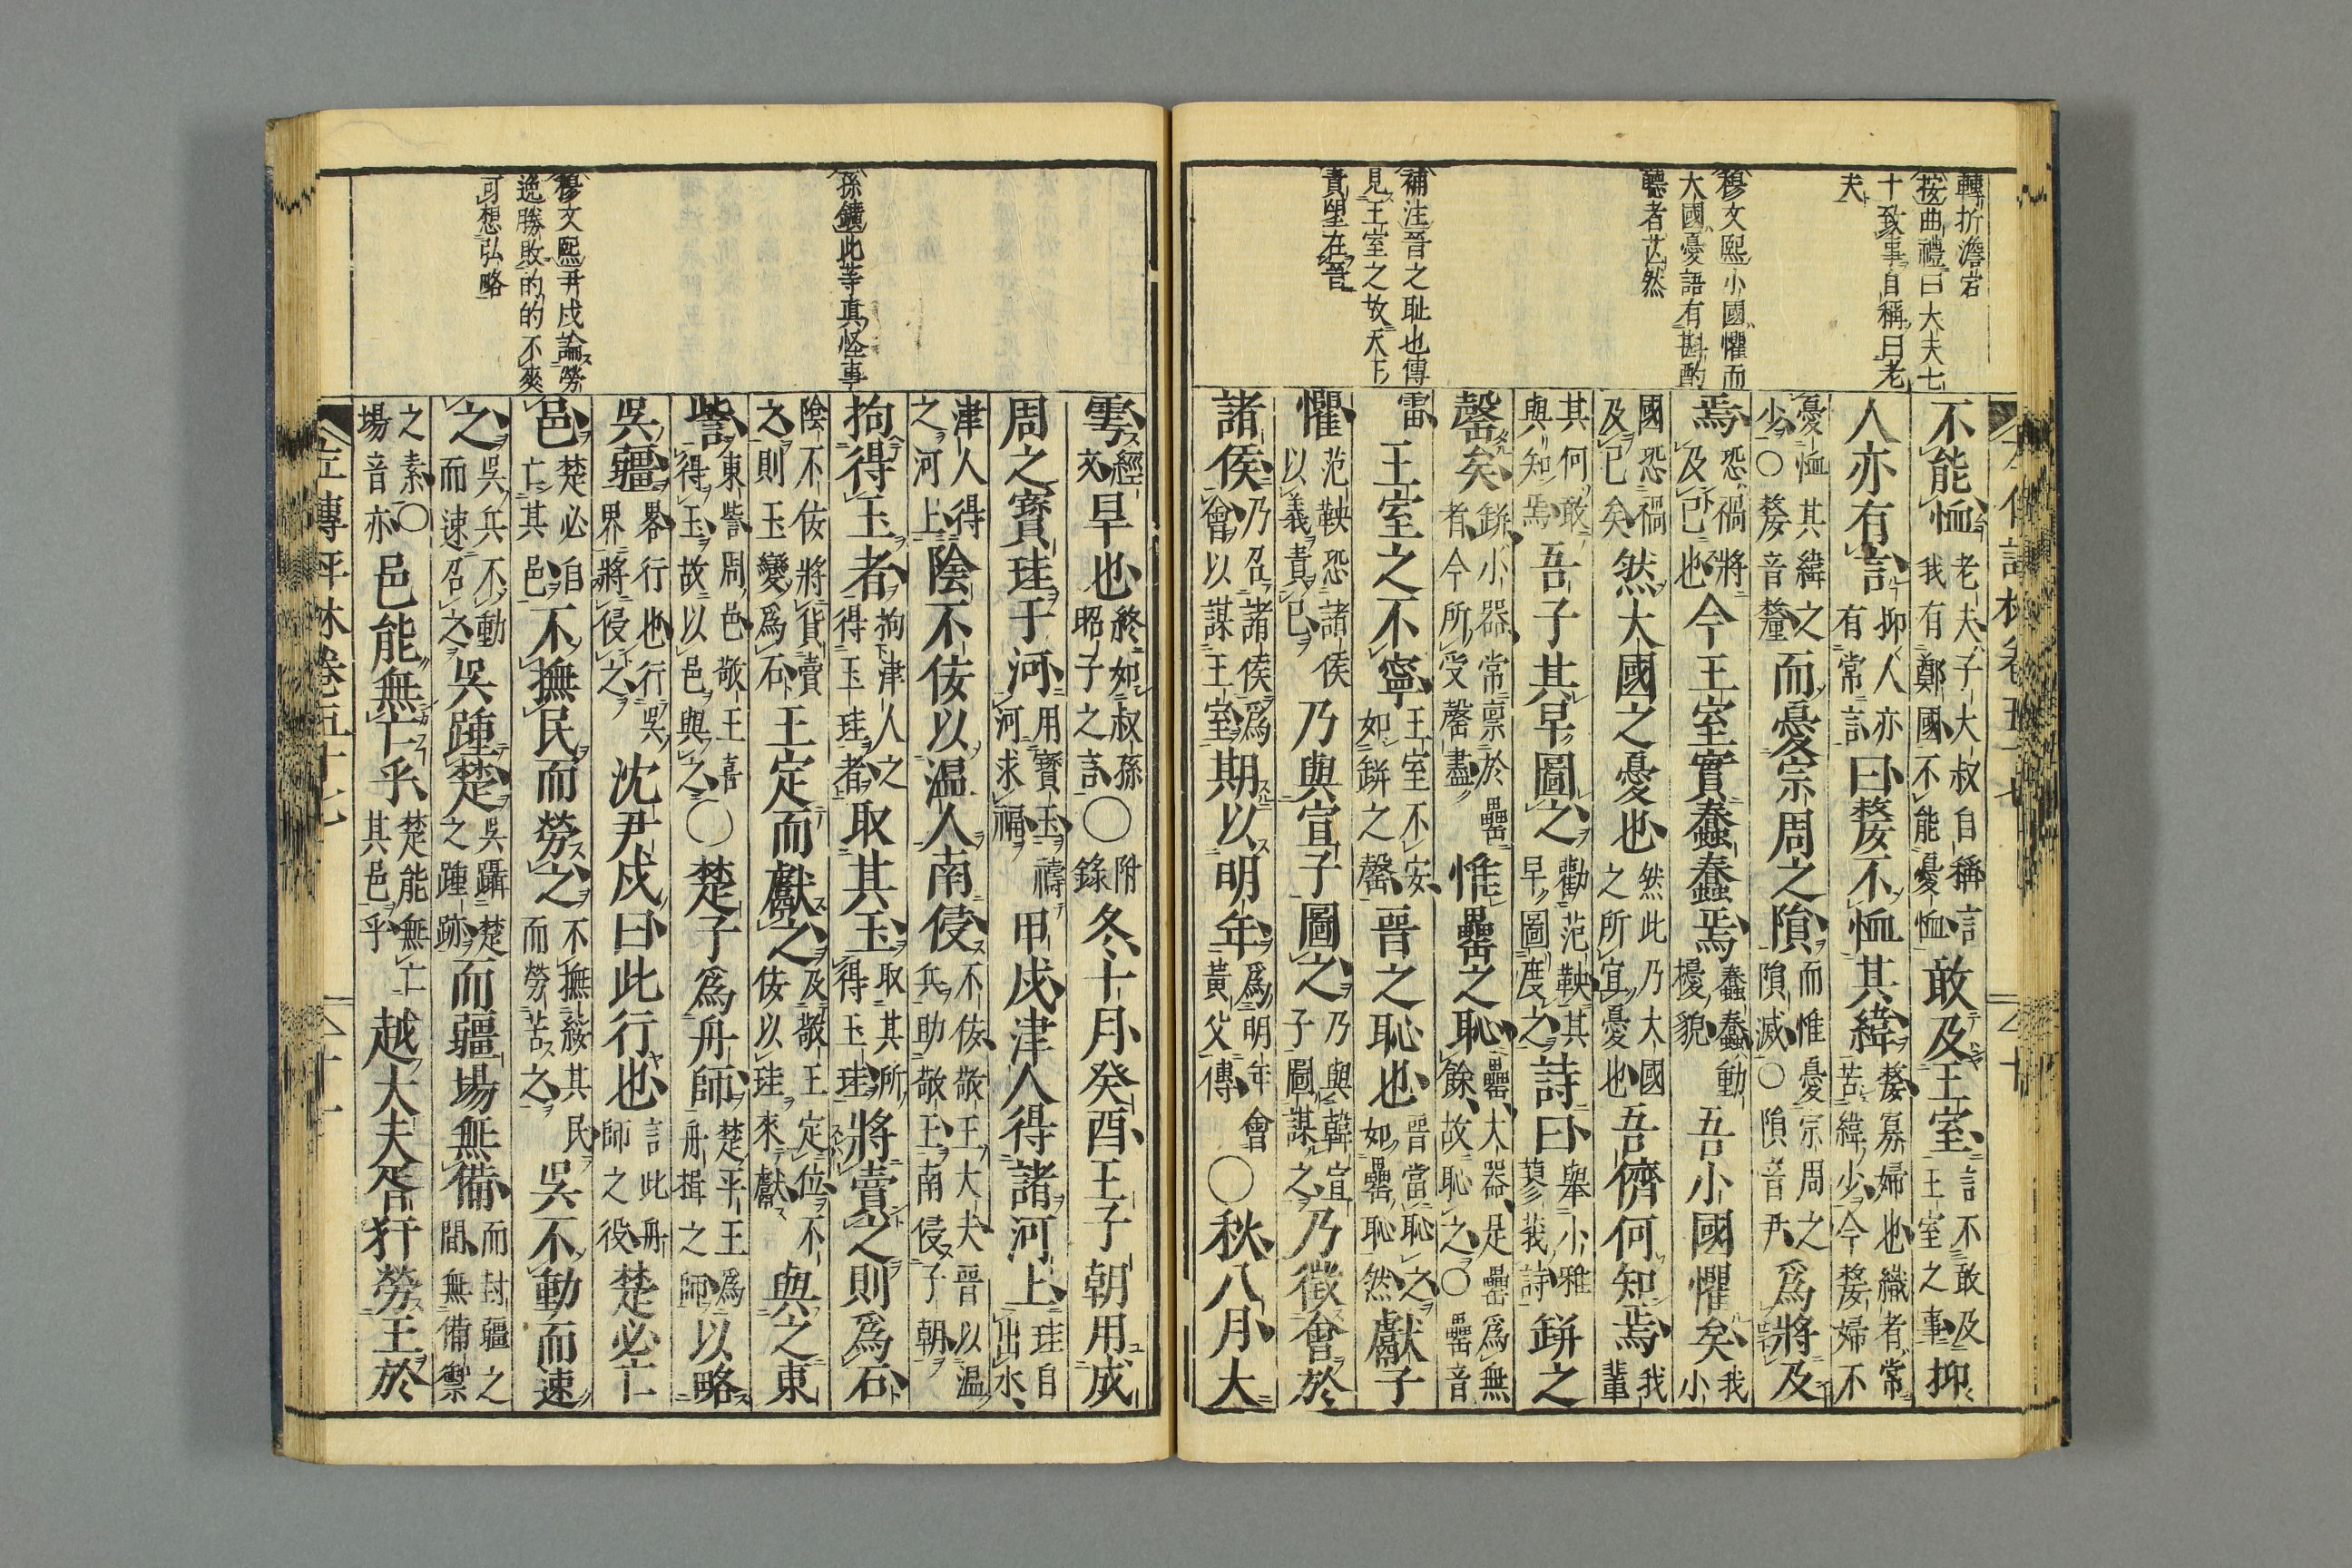 轉折澹宕
按曲禮曰大夫七
十致事自稱曰老
夫
穆文熙小國懼而
大國憂語有斟酌
聽者茫然
補注晉之耻也傳
見王室之故天下
責望在晉
不能恤老夫子大叔自稱言我有鄭國不能憂恤敢及王室言不敢及王室之事抑
人亦有言抑人亦有常言曰嫠不恤其緯嫠寡婦也織者常苦緯少今嫠婦不
憂恤其緯之少〇嫠音釐而憂宗周之隕而惟憂宗周之隕滅〇隕音尹爲將及
焉恐禍將及已也今王室實蠢蠢焉蠢蠢動擾貌吾小國懼矣我小
國恐禍及已矣然大國之憂也然此乃大國之所宜憂也吾儕何知焉我輩
其何敢與知焉吾子其早圖之勸范鞅其早圖度之詩曰舉小雅蓼莪詩缾之
罄矣缾小器常禀於罍者今所受罄盡惟罍之恥罍大器是罍爲無餘故恥之〇罍音
雷王室之不寧王室不安如缾之罄晉之恥也晉當恥之如罍恥然獻子
懼范鞅恐諸侯以義責已乃與宣子圖之乃與韓宣子圖謀之乃徵會於
諸侯乃召諸侯爲會以謀王室期以明年爲明年會黃父傳〇秋八月大
孫鑛此等真怪事
穆文熙尹戌論勞
逸勝敗的的不爽
可想弘略
雩經文旱也終如叔孫昭子之言〇附錄冬十月癸酉王子朝用成
周之寶珪于河用寶玉禱河求福甲戌津人得諸河上珪自出水
津人得之河上陰不佞以温人南侵不佞敬王大夫晉以温兵助敬王南侵子朝
拘得玉者拘津人之得玉珪者取其玉取其所得玉珪將賣之則爲石
陰不佞將貨賣之則玉變爲石王定而獻之及敬王定位不佞以珪來獻與之東
訾東訾周邑敬王喜得玉故以邑與之〇楚子爲舟師楚平王爲舟揖之師以略
吳疆畧行也行吳界將侵之沈尹戌曰此行也言此舟師之役楚必亡
邑楚必自亡其邑不撫民而勞之不撫綏其民而勞苦之吳不動而速
之吳兵不動而速召之吳踵楚吳躡楚之踵跡而疆場無備而封疆之間無備禦
之素〇場音亦邑能無亡乎楚能無亡其邑乎越大夫胥犴勞王於
左傳評林卷五十七